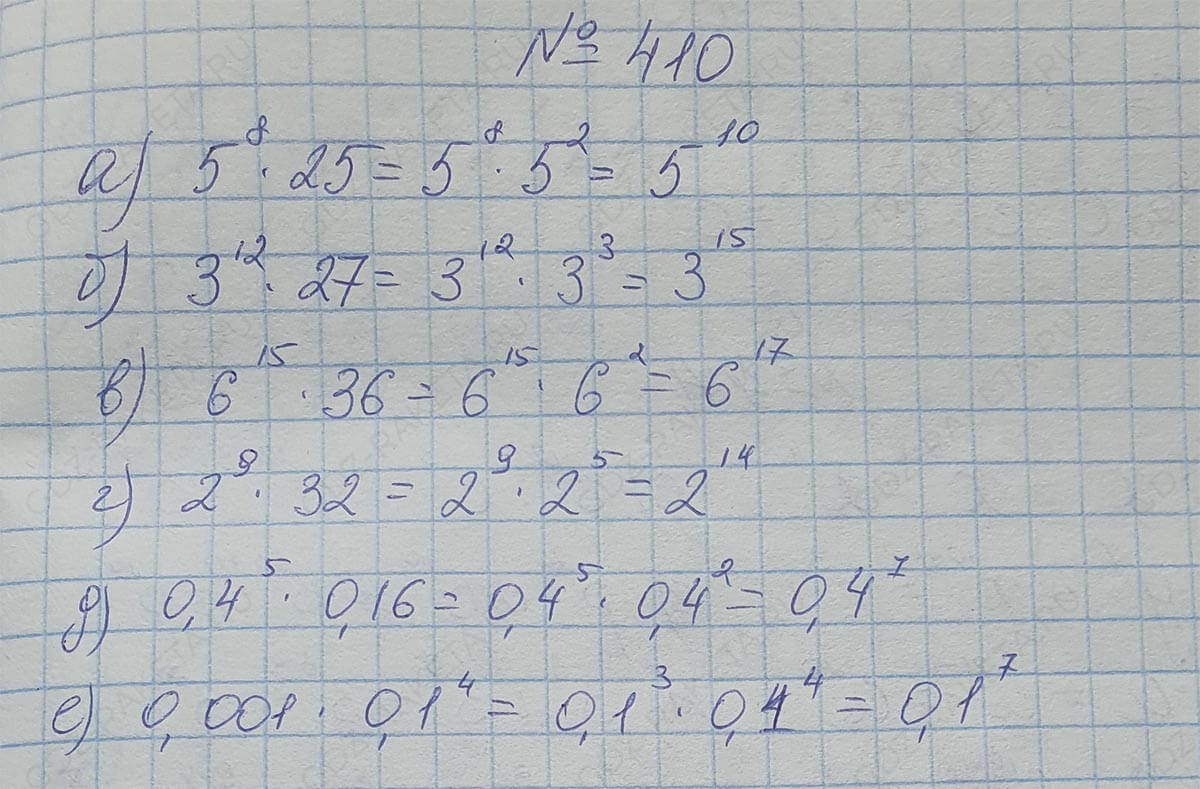 № 410
а) 5⁸ · 25 = 5⁸ · 5² = 5¹⁰
б) 3¹² · 27 = 3¹² · 3³ = 3¹⁵
в) 6¹⁵ · 36 = 6¹⁵ · 6² = 6¹⁷
г) 2⁹ · 32 = 2⁹ · 2⁵ = 2¹⁴
д) 0,4⁵ · 0,16 = 0,4⁵ · 0,4² = 0,4⁷
е) 0,001 · 0,1⁴ = 0,1³ · 0,1⁴ = 0,1⁷